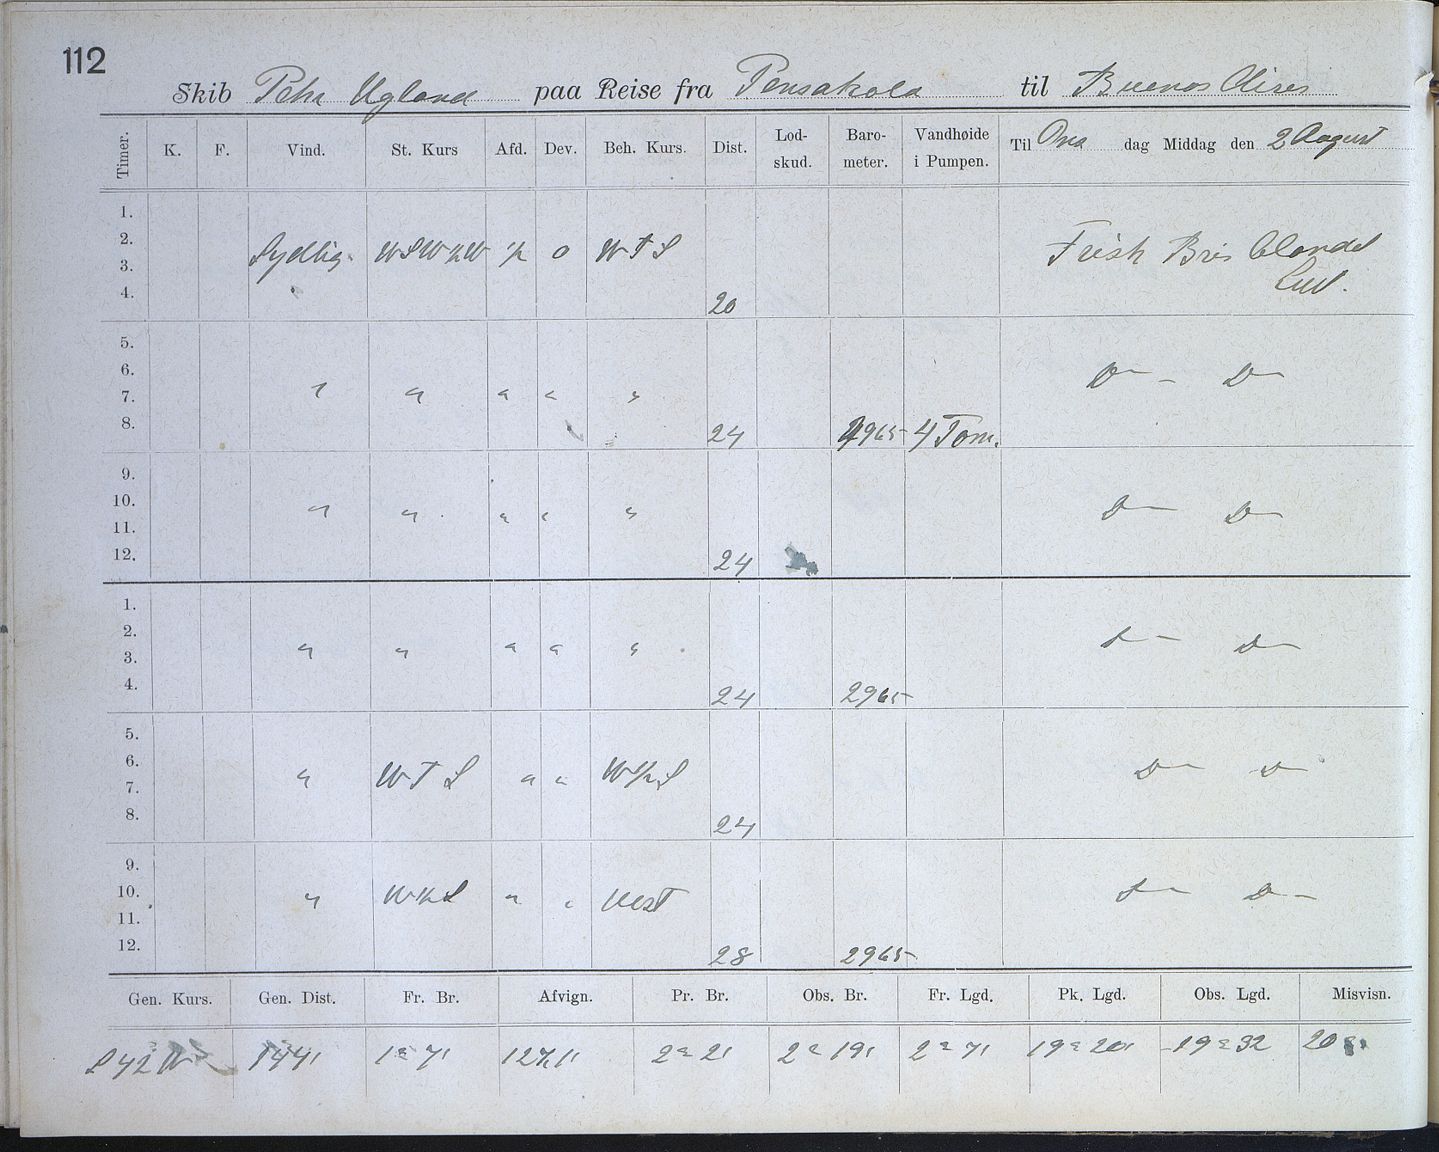 112
Skib Petra Ugland paa Reise fra Pensakola til Buenos Aires
Timer. K. F. Vind. St. Kurs Afd. Dev. Beh. Kurs. Dist. Lod-skud. Baro-meter. Vandhøide i Pumpen. Til Ons dag Middag den 2 August
1.
2. Sydlig WSW½W ½ 0 WTS Frisk Bris Clandet
3. Luft.
4. 20
5.
6. D— – D—
7. " " " " "
8. 24 2965 4 Tom.
9.
10. " " " " " D— D—
11.
12. 24
1.
2. D— D—
3. " " " " "
4. 24 2965
5.
6. " WTS " " W½S D— D—
7.
8. 24
9.
10. " W½S " " Vest D— D—
11.
12. 28 2965
Gen. Kurs. Gen. Dist. Fr. Br. Afvign. Pr. Br. Obs. Br. Fr. Lgd. Pk. Lgd. Obs. Lgd. Misvisn.
S 42 W 144 1° 7' 127,1 2° 2' 2° 19' 2° 7' 19° 20' 19° 32 20